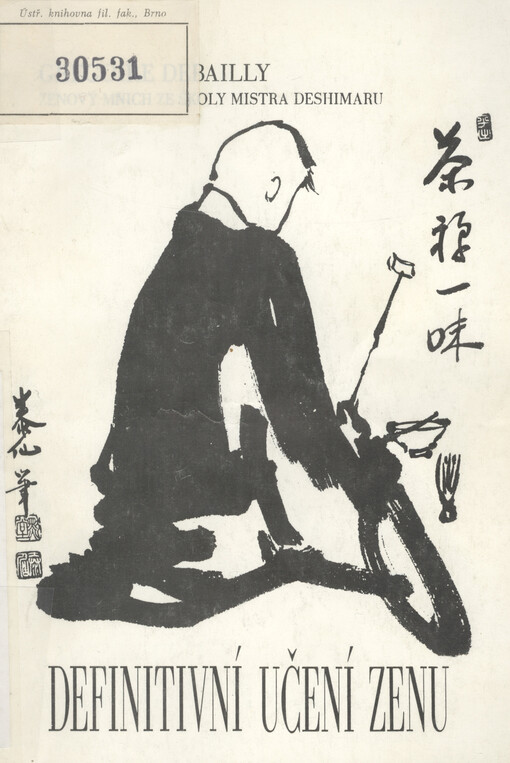 Ústř. knihovna fil. fak., Brno
30531
BAILLY
ZENOVÝ MNICH ZE ŠKOLY MISTRA DESHIMARU
茶禅一味
泰仙筆
DEFINITIVNÍ UČENÍ ZENU